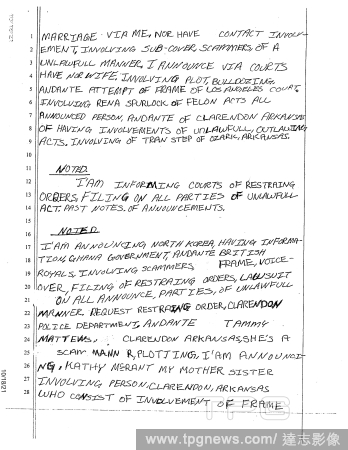 MARRIAGE VIA ME, NOR HAVE CONTACT INVOLV-
EMENT, INVOLVING SUB-COVER, SCAMMERS, OF A
UNLAWFULL MANNER, I ANNOUNCE VIA COURTS
HAVE NOR WIFE, INVOLVING PLOT, BULLDOZING,
ANDANTE ATTEMPT OF FRAME OF LOS ANGELES COURT,
INVOLVING RENA SPURLOCK OF FELON ACTS ALL
ANNOUNCED PERSON, ANDANTE OF CLARENDON ARKANSAS
OF HAVING INVOLVEMENTS OF UNLAWFULL, OUTLAWING
ACTS, INVOLVING OF TRAN STEP OF OZARK, ARKANSAS.
NOTED.
I'AM INFORMING COURTS OF RESTRAING
ORDERS, FILING ON ALL PARTIES OF UNLAWFULL
ACT. PAST NOTES OF ANNOUNCEMENTS.
NOTED
I'AM ANNOUNCING, NORTH KOREA, HAVING INFORMA-
TION, GHANA GOVERNMENT, ANDANTE BRITISH
ROYALS, INVOLVING SCAMMERS FRAME, VOICE-
OVER, FILING OF RESTRAING ORDERS, LAWSUIT
ON ALL ANNOUNCE, PARTIES, OF UNLAWFULL
MANNER. REQUEST RESTRAING ORDER, CLARENDON
POLICE DEPARTMENT, ANDANTE TAMMY
MATTEWS, CLARENDON ARKANSAS, SHE'S A
SCAM MANN R, PLOTTING, I'AM ANNOUNCI-
NG, KATHY MERANT MY MOTHER SISTER
INVOLVING PERSON, CLARENDON, ARKANSAS
WHO CONSIST OF INVOLVEMENT OF FRAME
10/18/21
www.tpgnews.com/ 達志影像